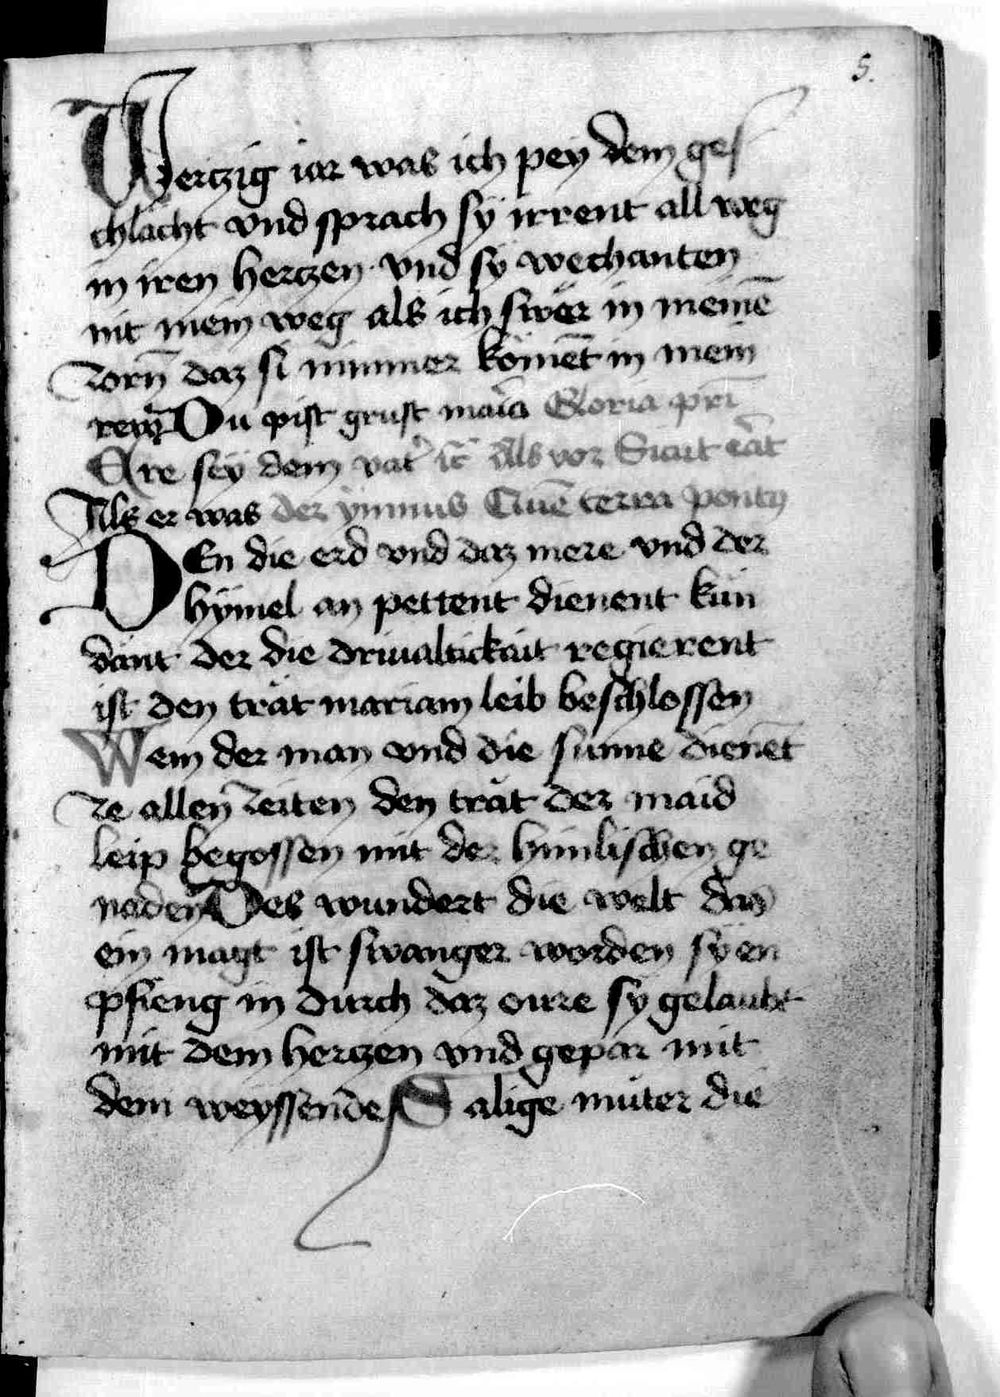 5.
Viertzig iar was ich pey dem ges
chlächt vnd sprach sÿ irrent all weg
in iren hertzen · vnd sÿ wechanten
nit mein weg als ich swǔr in meinē
zorn̄ daz si nimmer kömēt in mein
Du pist grust maria Gloria pr̄i
Ere sey dem vat̉ Als vor Sicut erat
Als er was der ÿmnus Quē terra ponty
DEn die erd vnd daz mere vnd der
hÿmel an pettent dienent kün
dänt der die driualtickait regierent
ist den trät mariam leib beschlossen
Wem der man vnd die sunne dienēt
ze allen zeiten den trät der maid
leip begossen mit der himlischen ge
naden Des wundert die welt das
ein magt ist swanger worden sÿ en
pfieng in durch daz oure sy gelaubt
mit dem hertzen vnd gepar mit
dem weyssende S alige müter die